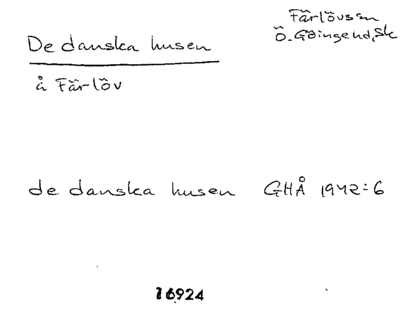 De danska husen
Färlövs sn
Ö. Göinge hd, Sk
å Färlöv
de danska husen GHÅ 1942:6
16924